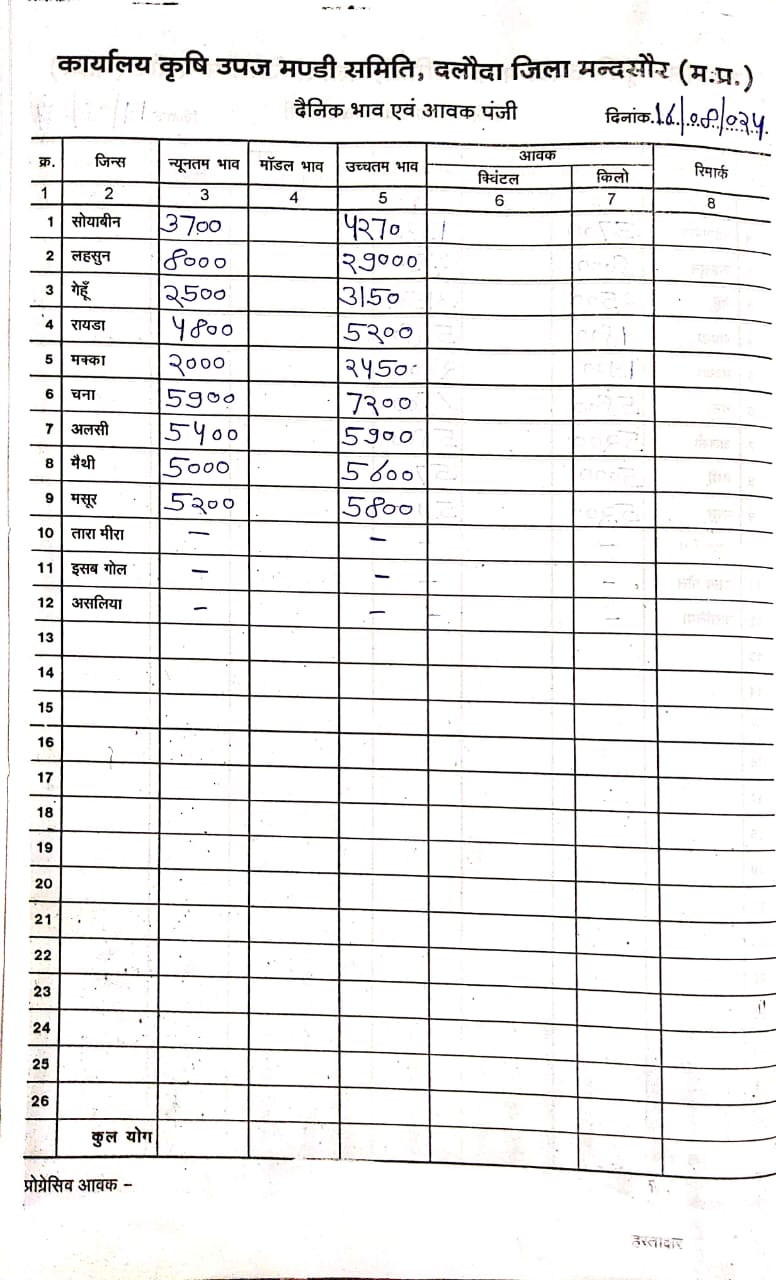 कार्यालय कृषि उपज मण्डी समिति, दलौदा जिला मन्दसौर (म.प्र.)
दैनिक भाव एवं आवक पंजी
दिनांक.
क्र. जिन्स न्यूनतम भाव मॉडल भाव उच्चतम भाव आवक रिमार्क
क्विंटल किलो
1 2 3 4 5 6 7 8
1 सोयाबीन 3700 ४२70
2 लहसुन 8000 २9000
3 गेहूँ २500 3150
4 रायडा ५800 5२00
5 मक्का २000 २५50
6 चना 5900 7२00
7 अलसी 5५00 5900
8 मैथी 5000 5600
9 मसूर 5२00 5800
10 तारा मीरा – – –
11 इसब गोल – – - –
12 असलिया – – - –
13
14
15
16
17
18
19
20
21
22
23
24
25
26
कुल योग
प्रोग्रेसिव आवक –
हस्ताक्षर